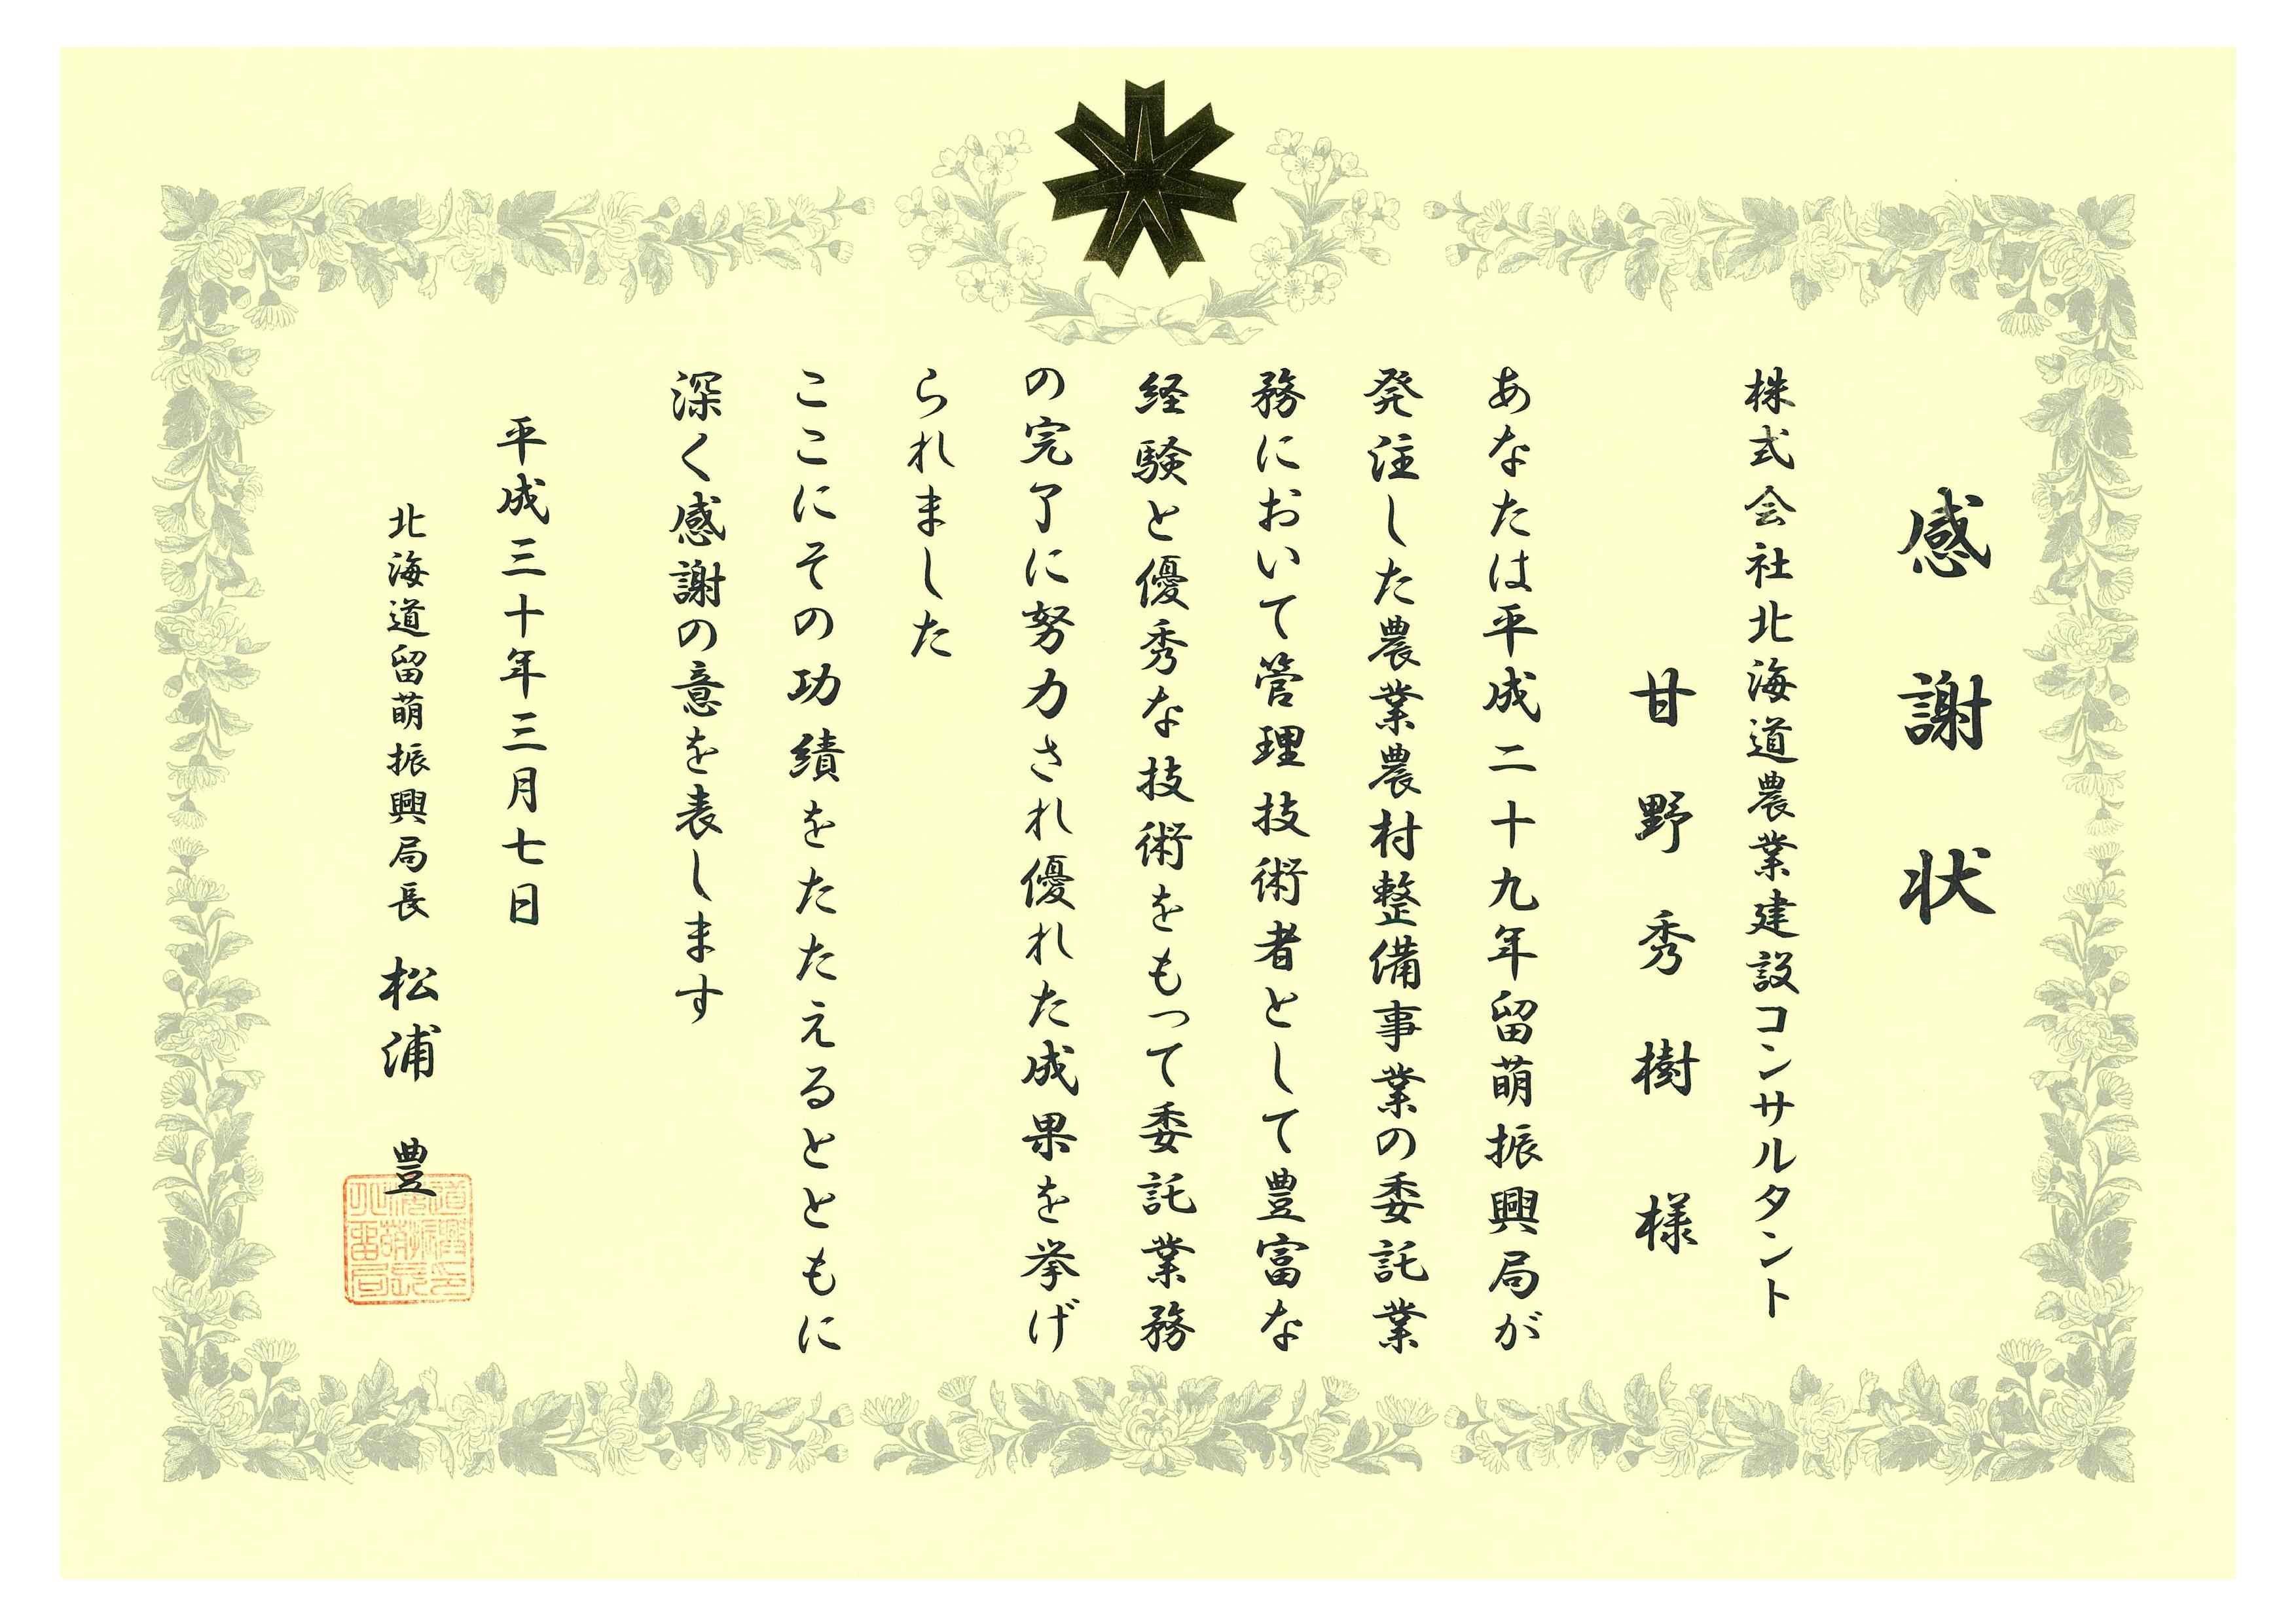 感謝状
株式会社北海道農業建設コンサルタント
甘野秀樹様
あなたは平成二十九年留萌振興局が
発注した農業農村整備事業の委託業
務において管理技術者として豊富な
経験と優秀な技術をもって委託業務
の完了に努力され優れた成果を挙げ
られました
ここにその功績をたたえるとともに
深く感謝の意を表します
平成三十年三月七日
北海道留萌振興局長 松浦 豊